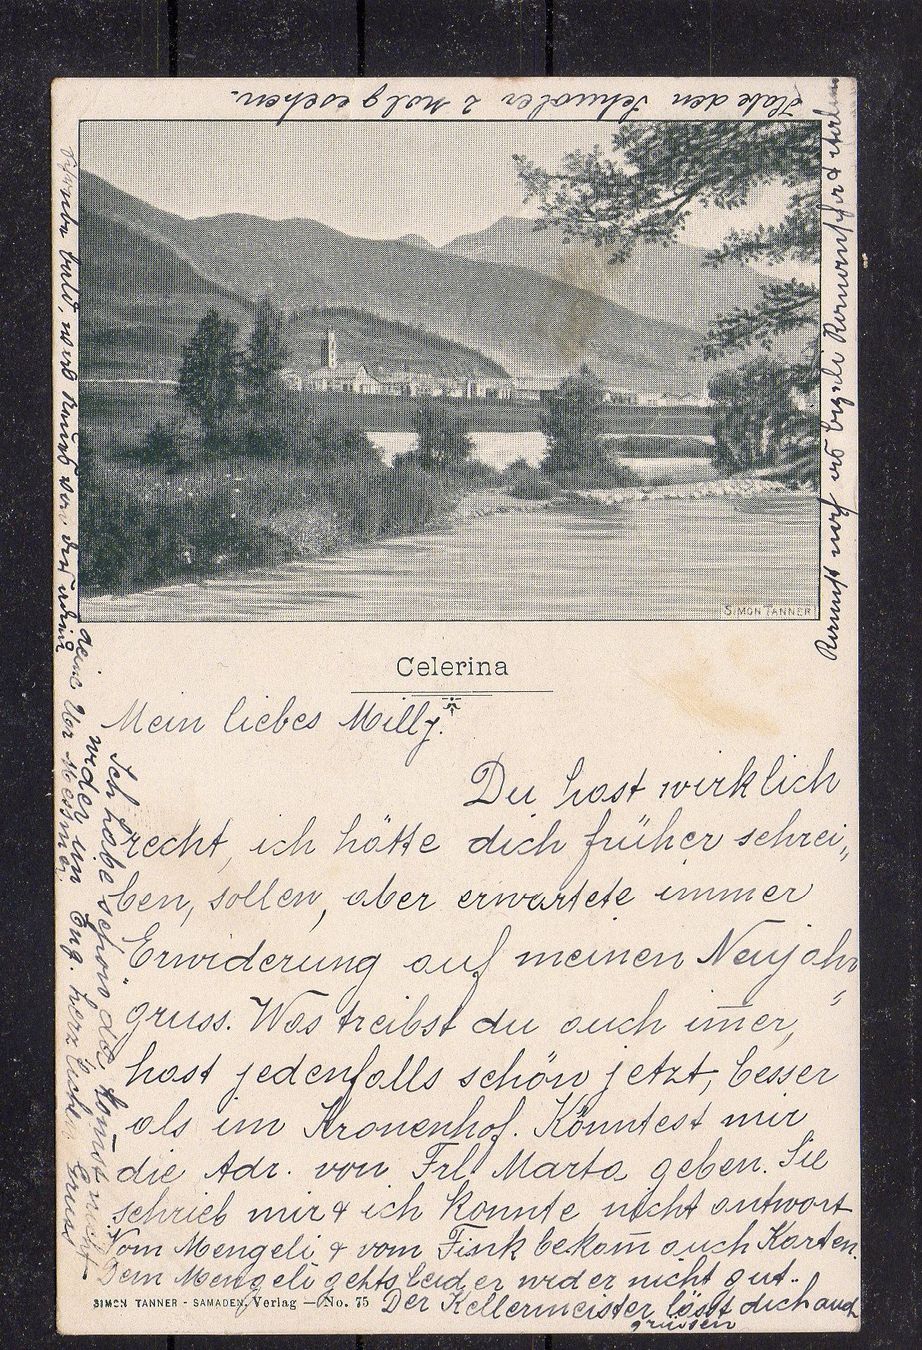 Habe den Schuoler 2 Mal gesehen.
SIMON TANNER
Celerina
Mein liebes Milly.
Du hast wirklich
recht, ich hätte dich früher schrei„
ben, sollen, aber erwartete immer
Erwiderung auf meinen Neujahr
„gruss. Was treibst du auch im̄er,
hast jedenfalls schön jetzt, besser
als im Kronenhof. Könntest mir
die Adr. von Frl. Marta geben. Sie
schrieb mir & ich konnte nicht antwort
Vom Mengeli & vom Fink bekam̄ auch Karten.
Dem Mengeli gehts leider wider nicht gut.
Der Kellermeister lässt dich auch
grüssen
SIMON TANNER - SAMADEN, Verlag — No. 75
Ich habe schon da, kom̄st nicht
wider im Eng. herzlichen Gruss
deine
bald,